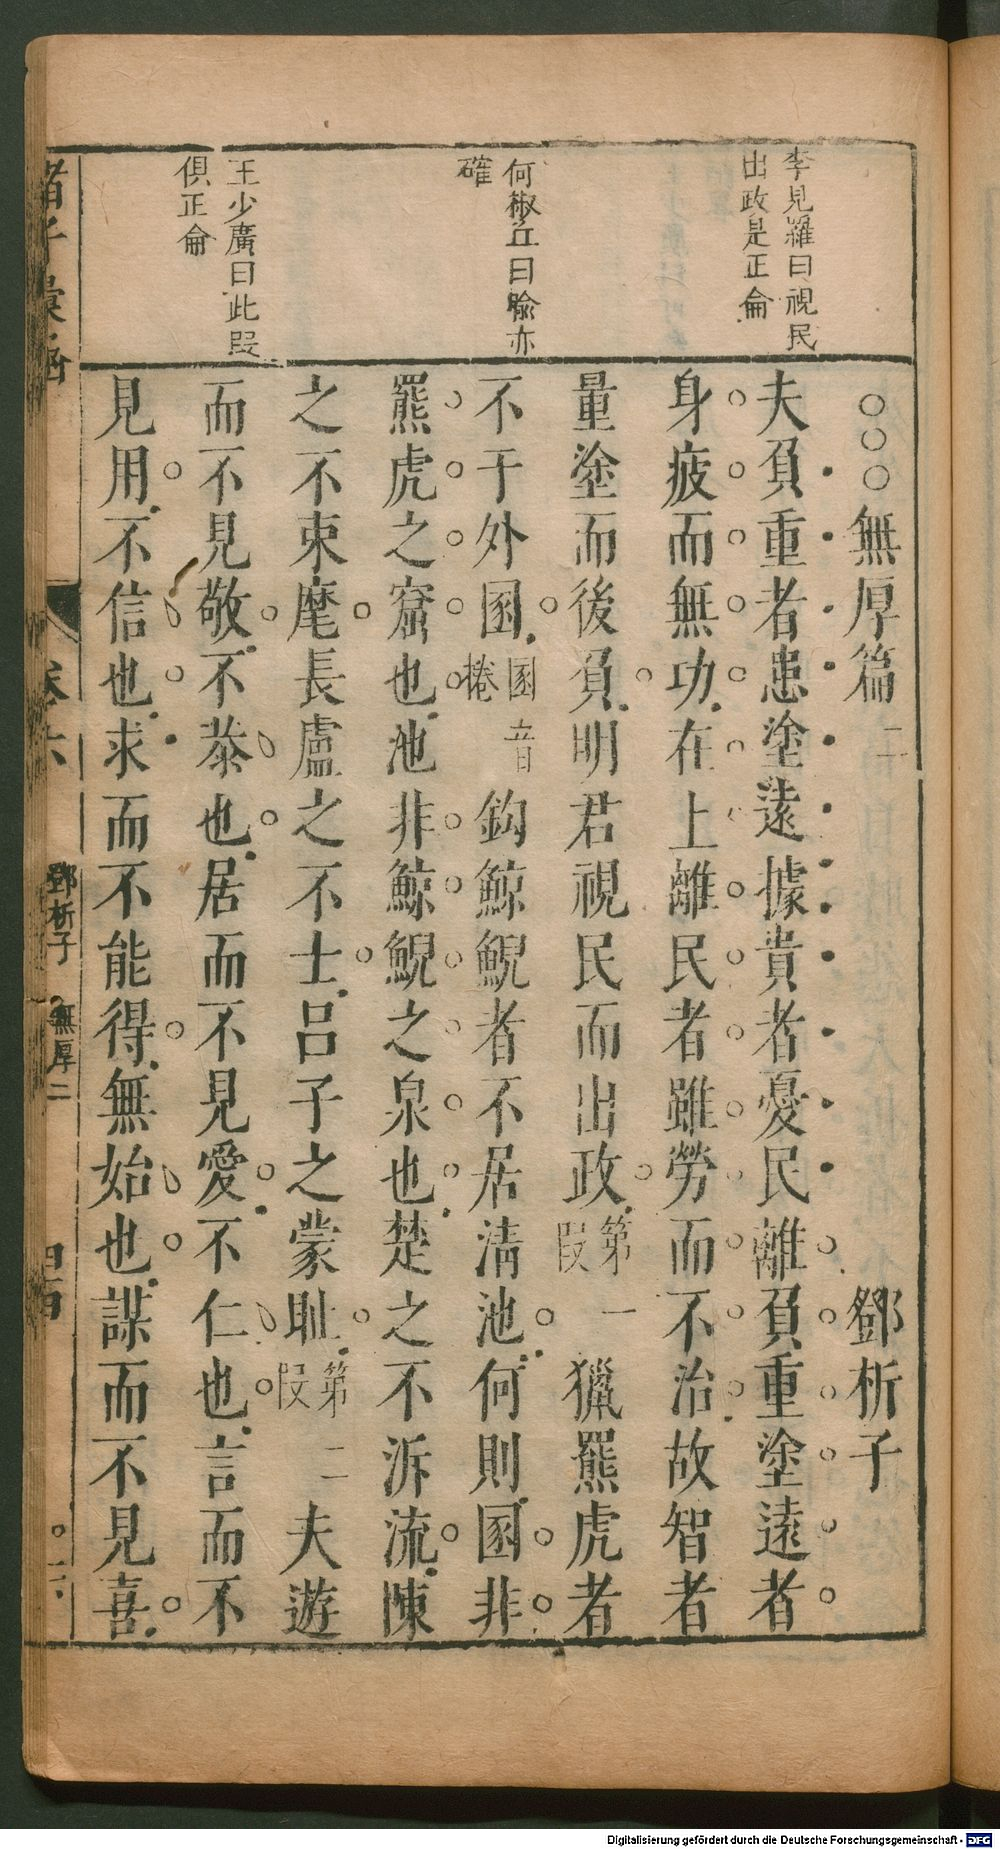 李見羅曰視民
出政是正侖
何椒丘曰喻亦
確
王少廣曰此段
俱正侖
○○○無厚篇二 鄧析子
夫負重者患塗遠據貴者憂民離負重塗遠者
身疲而無功在上離民者雖勞而不治故智者
量塗而後負明君視民而出政第一段 獵羆虎者
不于外圂圂音棬鈎鯨鯢者不居淸池何則圂非
羆虎之窟也池非鯨鯢之泉也楚之不泝流陳
之不束麾長盧之不士呂子之蒙恥第二段 夫遊
而不見敬不恭也居而不見愛不仁也言而不
見用不信也求而不能得無始也謀而不見喜
諸子彙函
卷六
鄧析子 無厚二
Digitalisierung gefördert durch die Deutsche Forschungsgemeinschaft - DFG